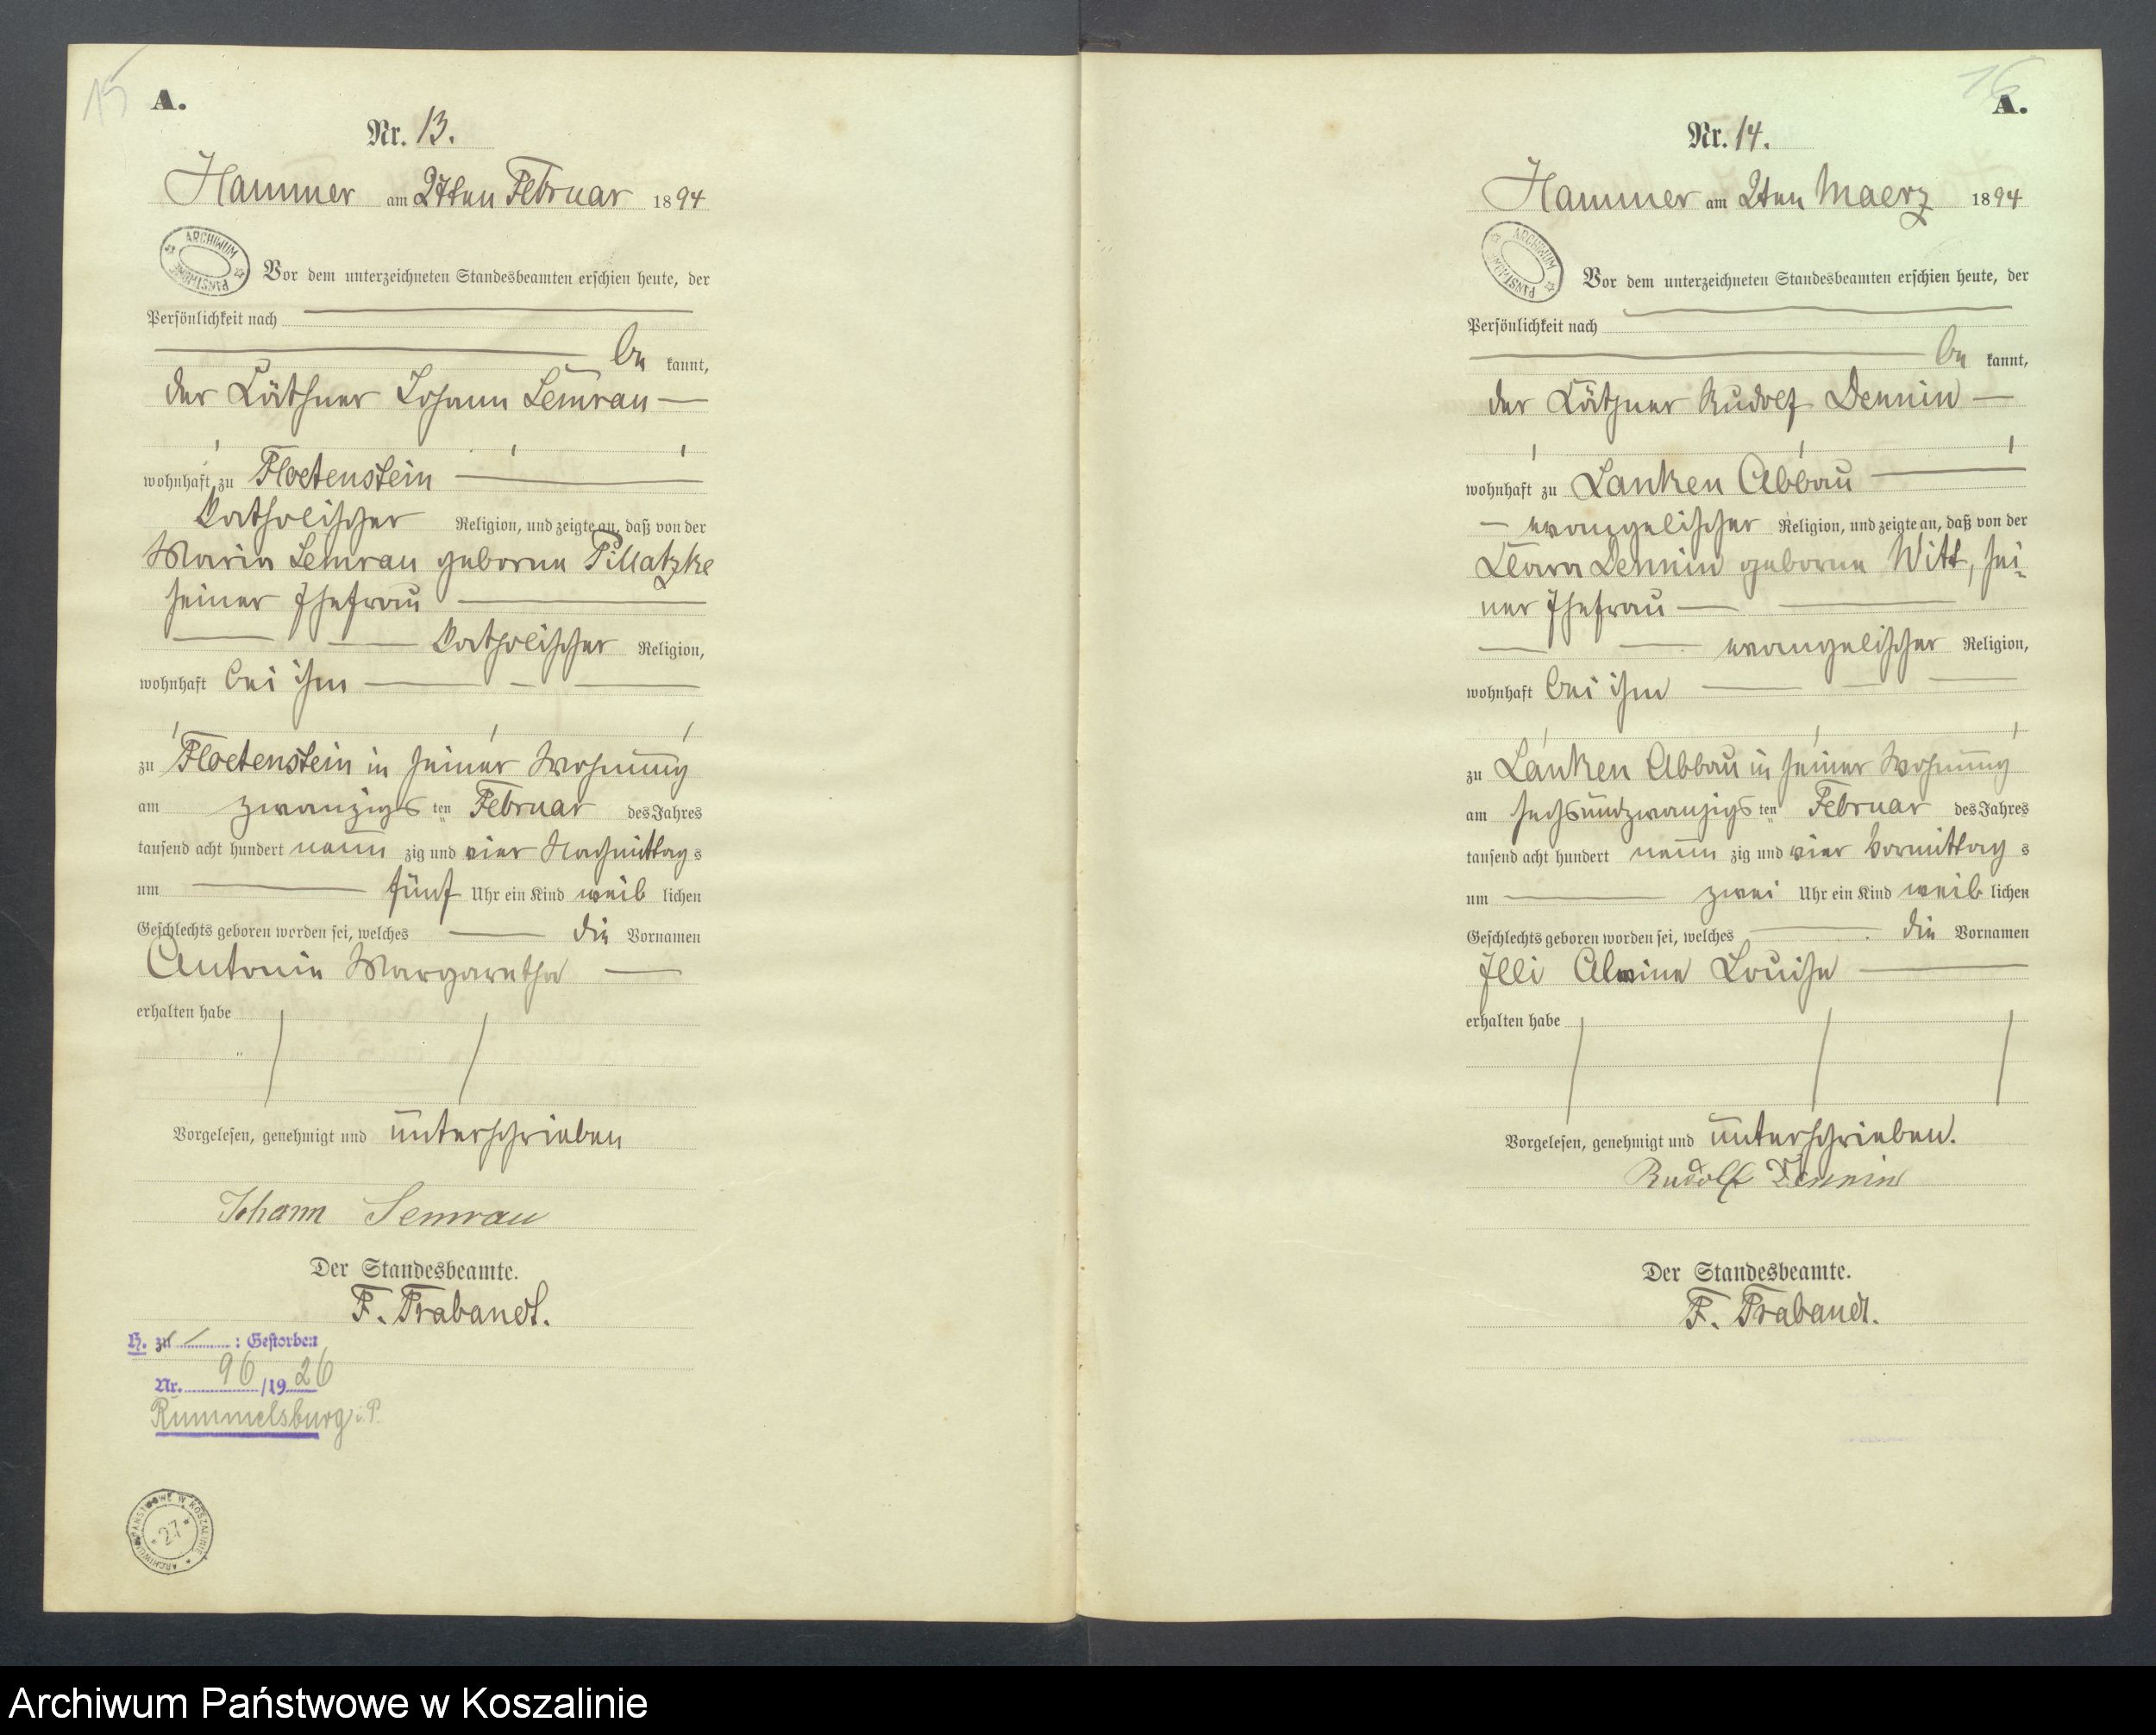 15
A.
Nr. 13.
Hammer am 27ten Februar 1894
ARCHIWUM PAŃSTWOWE
Vor dem unterzeichneten Standesbeamten erschien heute, der
Persönlichkeit nach
be kannt,
der Käthner Johann Semrau
wohnhaft zu Floetenstein
katholischer Religion, und zeigte an, daß von der
Maria Semrau geborne Pillatzke
seiner Ehefrau
katholischer Religion,
wohnhaft bei ihm
zu Floetenstein in seiner Wohnung
am zwanzigs ten Februar des Jahres
tausend acht hundert neun zig und vier Nachmittag s
um fünf Uhr ein Kind weib lichen
Geschlechts geboren worden sei, welches die Vornamen
Antonie Margaretha
erhalten habe
Vorgelesen, genehmigt und unterschrieben
Johann Semrau
Der Standesbeamte.
F. Trabandt.
H. zu : Gestorben
Nr. 96 /19 26
Rummelsburg i. P.
ARCHIWUM PAŃSTWOWE W KOSZALINIE
* 27 *
16
A.
Nr. 14.
Hammer am 2ten Maerz 1894
ARCHIWUM PAŃSTWOWE
Vor dem unterzeichneten Standesbeamten erschien heute, der
Persönlichkeit nach
be kannt,
der Käthner Rudolf Dennin
wohnhaft zu Lanken Abbau
evangelischer Religion, und zeigte an, daß von der
Clara Dennin geborne Witt, sei-
ner Ehefrau
evangelischer Religion,
wohnhaft bei ihm
zu Lanken Abbau in seiner Wohnung
am sechsundzwanzigs ten Februar des Jahres
tausend acht hundert neun zig und vier Vormittag s
um zwei Uhr ein Kind weib lichen
Geschlechts geboren worden sei, welches die Vornamen
Elli Alwine Louise
erhalten habe
Vorgelesen, genehmigt und unterschrieben.
Rudolf Dennin
Der Standesbeamte.
F. Trabandt.
Archiwum Państwowe w Koszalinie